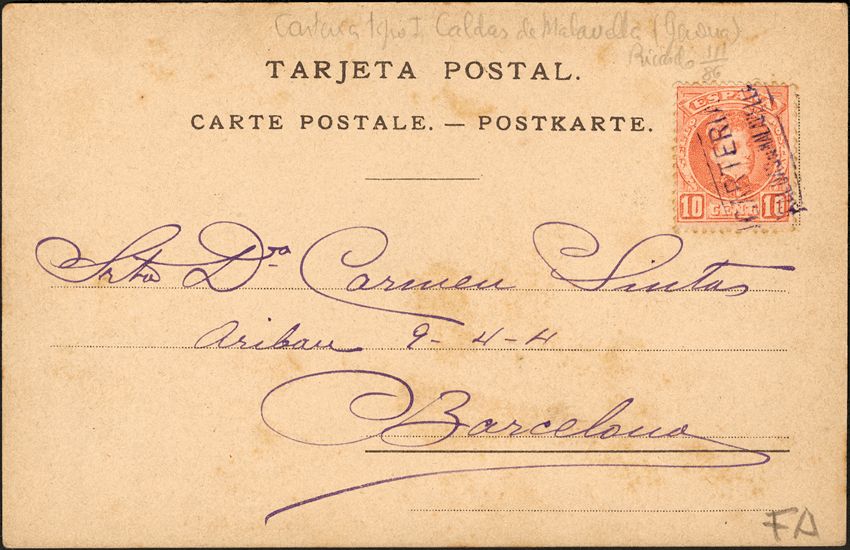 Cartería tipo I. Caldas de Malavella (Gerona)
Ricardo III
86
TARJETA POSTAL.
CARTE POSTALE. — POSTKARTE.
ESPAÑA
CARTERIA
10 CENT 10
Srta Dra Carmen Sintas
Aribau 9-4-4
Barcelona
FA